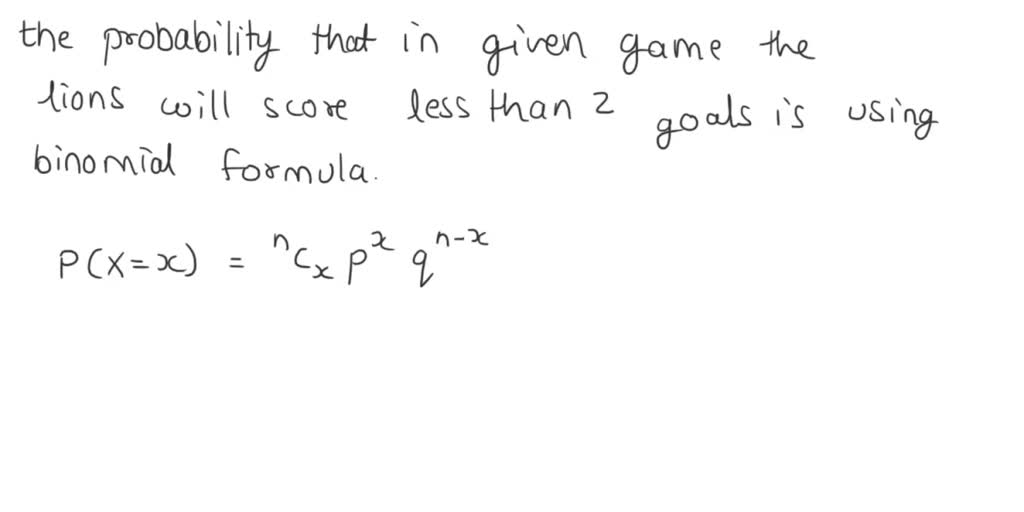 the probability that in given game the
lions will score less than 2 goals is using
binomial formula.
P(X=x) = ⁿCₓ pˣ qⁿ⁻ˣ